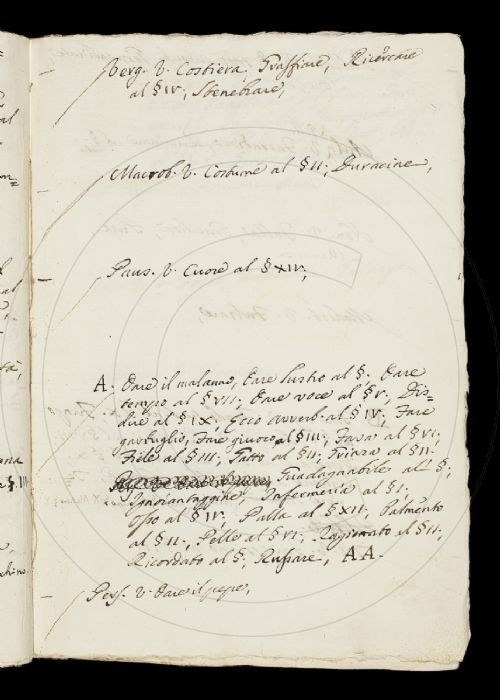 Verg. V. Costiera, Graffiare, Ricercare
al § IV; Stenebrare,
Macrob. V. Costume al § II; Duracine,
Paus. V. Cuore al § XIV;
A. Dare il malanno, Dare lustro al §. Dare
tempo al § VII; Dare voce al § V, Dis=
dire al § IX; Ecco avverb. al § IV, Fare
garbuglio, Fare giuoco al § III; Favas al § VI;
File al § III; Fatto al § II; Frinza al § II.
Guadagnabile al §;
Ignorantaggine, Infermeria al § I.
Osso al § IV. Palla al § XII, Palmento
al § II, Pelle al § VI, Ragionato al § II;
Ricordato al §, Rufiare, AA.
Pers. V. Dare il pepe,